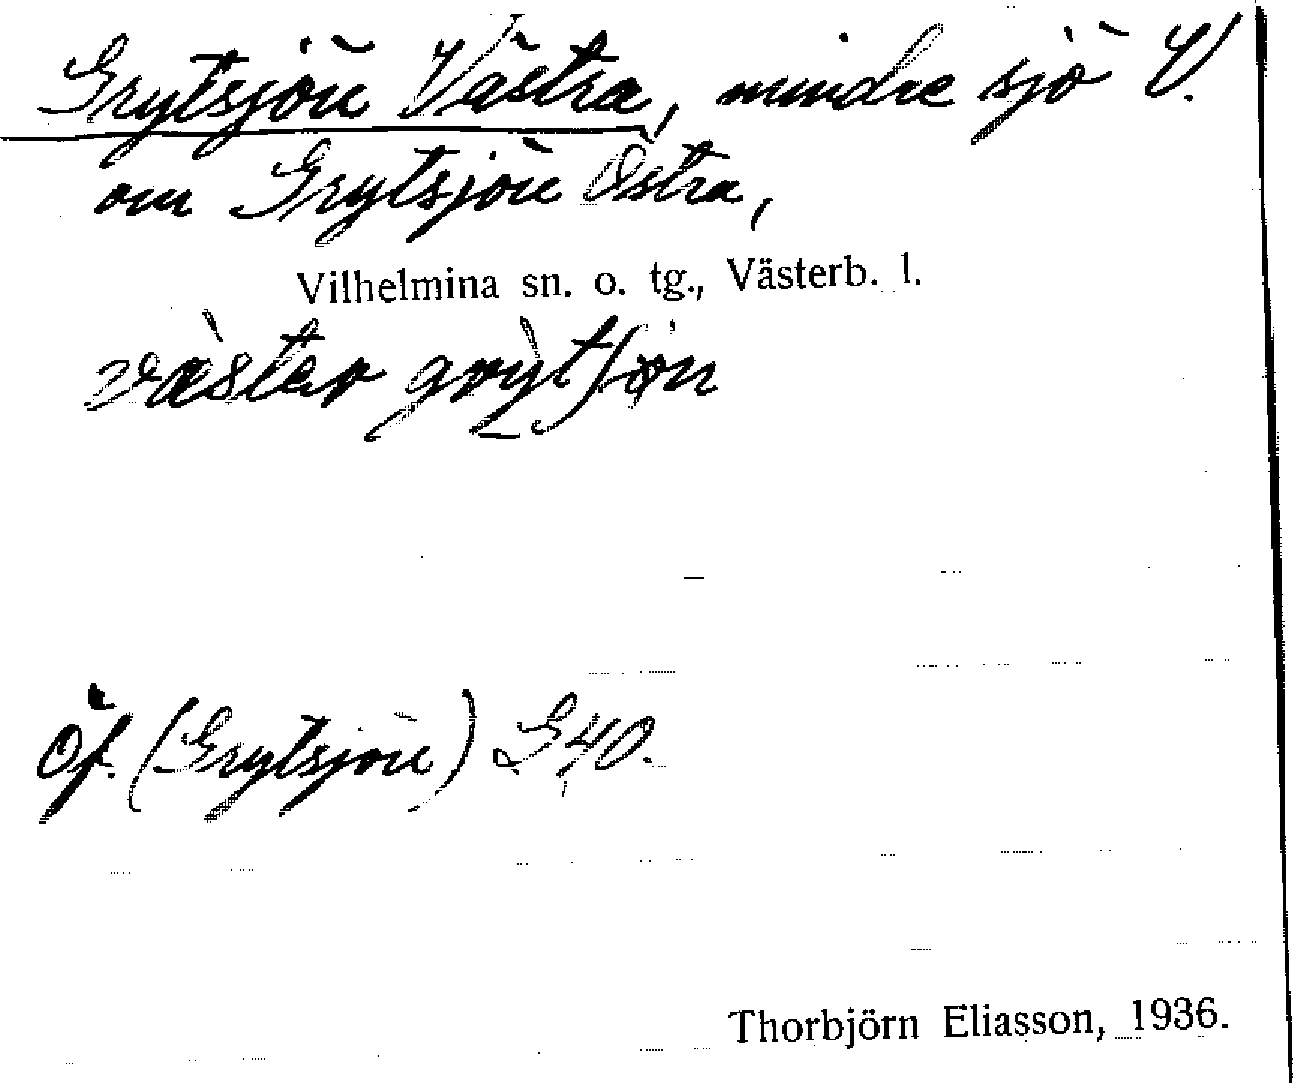 Grytsjön Västra, mindre sjö V.
om Grytsjön Östra,
Vilhelmina sn. o. tg., Västerb. l.
väster
Öf. (Grytsjön) G40.
Thorbjörn Eliasson, 1936.